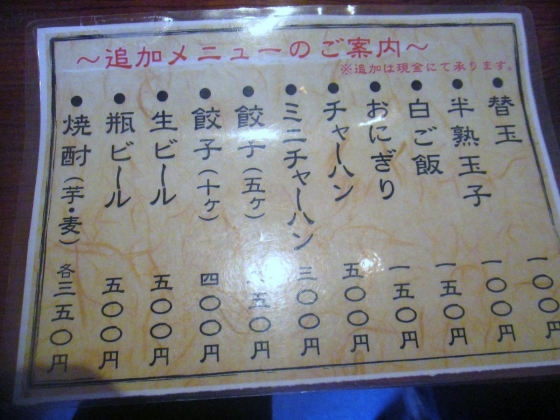 ～追加メニューのご案内～
※追加は現金にて承ります。
●替玉 一〇〇円
●半熟玉子 一〇〇円
●白ご飯 一五〇円
●おにぎり 一五〇円
●チャーハン 五〇〇円
●ミニチャーハン 三〇〇円
●餃子(五ヶ) 五〇円
●餃子(十ヶ) 四〇〇円
●生ビール 五〇〇円
●瓶ビール 五〇〇円
●焼酎(芋・麦) 各三五〇円